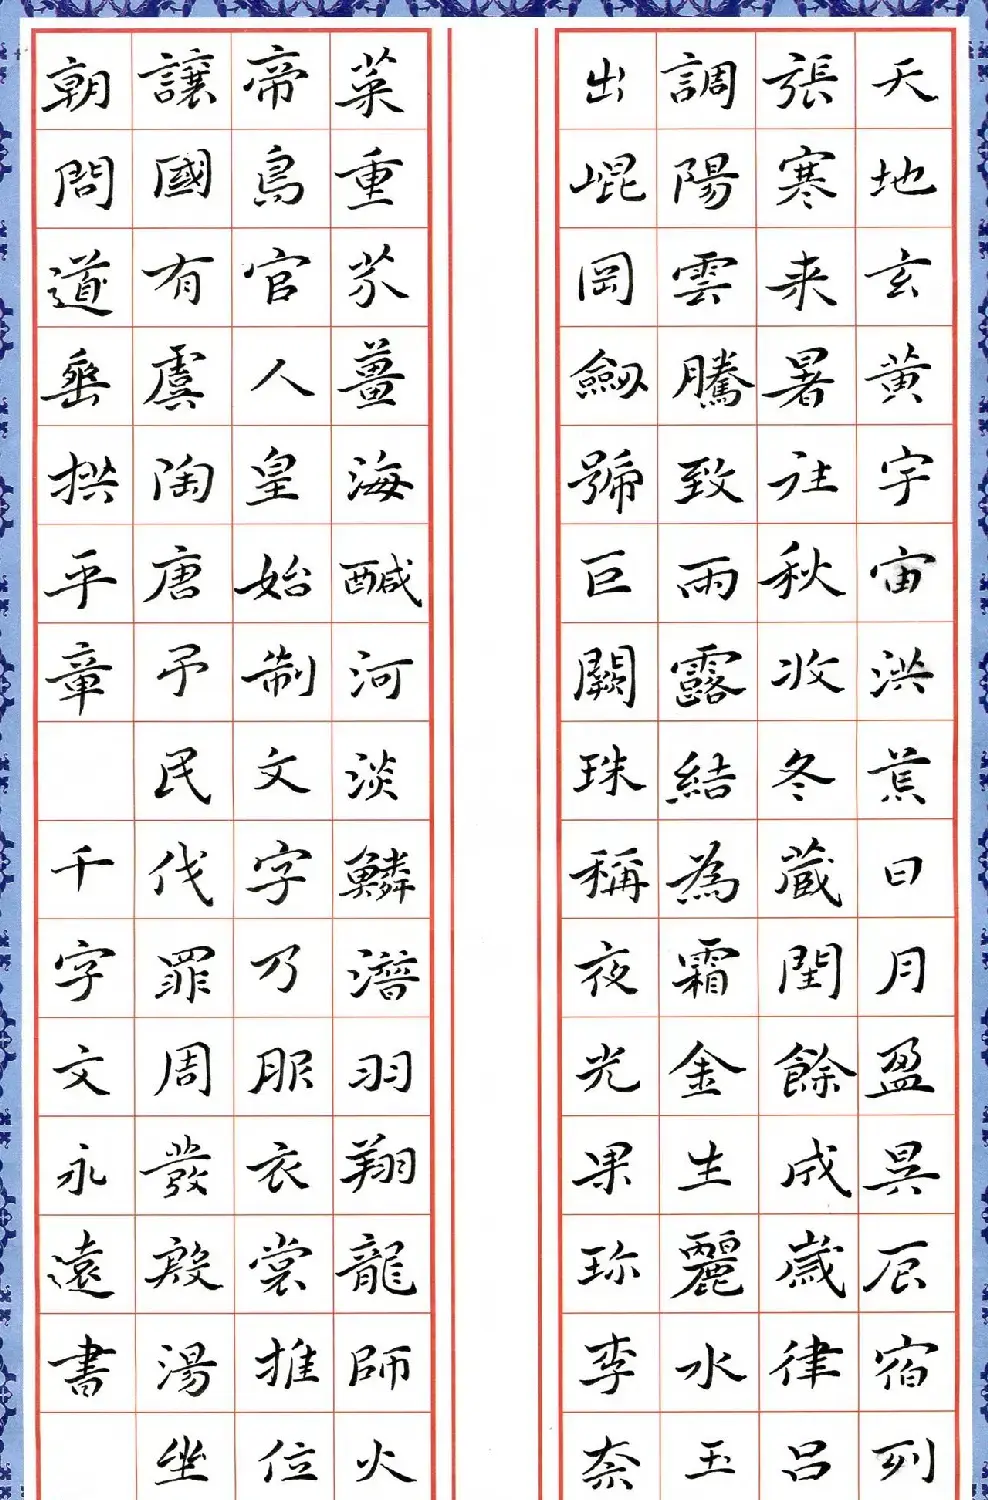 天地玄黃宇宙洪荒日月盈昃辰宿列
張寒来暑往秋收冬藏閏餘成歲律吕
調陽雲騰致雨露結為霜金生麗水玉
出崐岡劔號巨闕珠稱夜光果珎李柰
菜重芥薑海醎河淡鱗潛羽翔龍師火
帝鳥官人皇始制文字乃服衣裳推位
讓國有虞陶唐弔民伐罪周發殷湯坐
朝問道垂拱平章
千字文永遠書